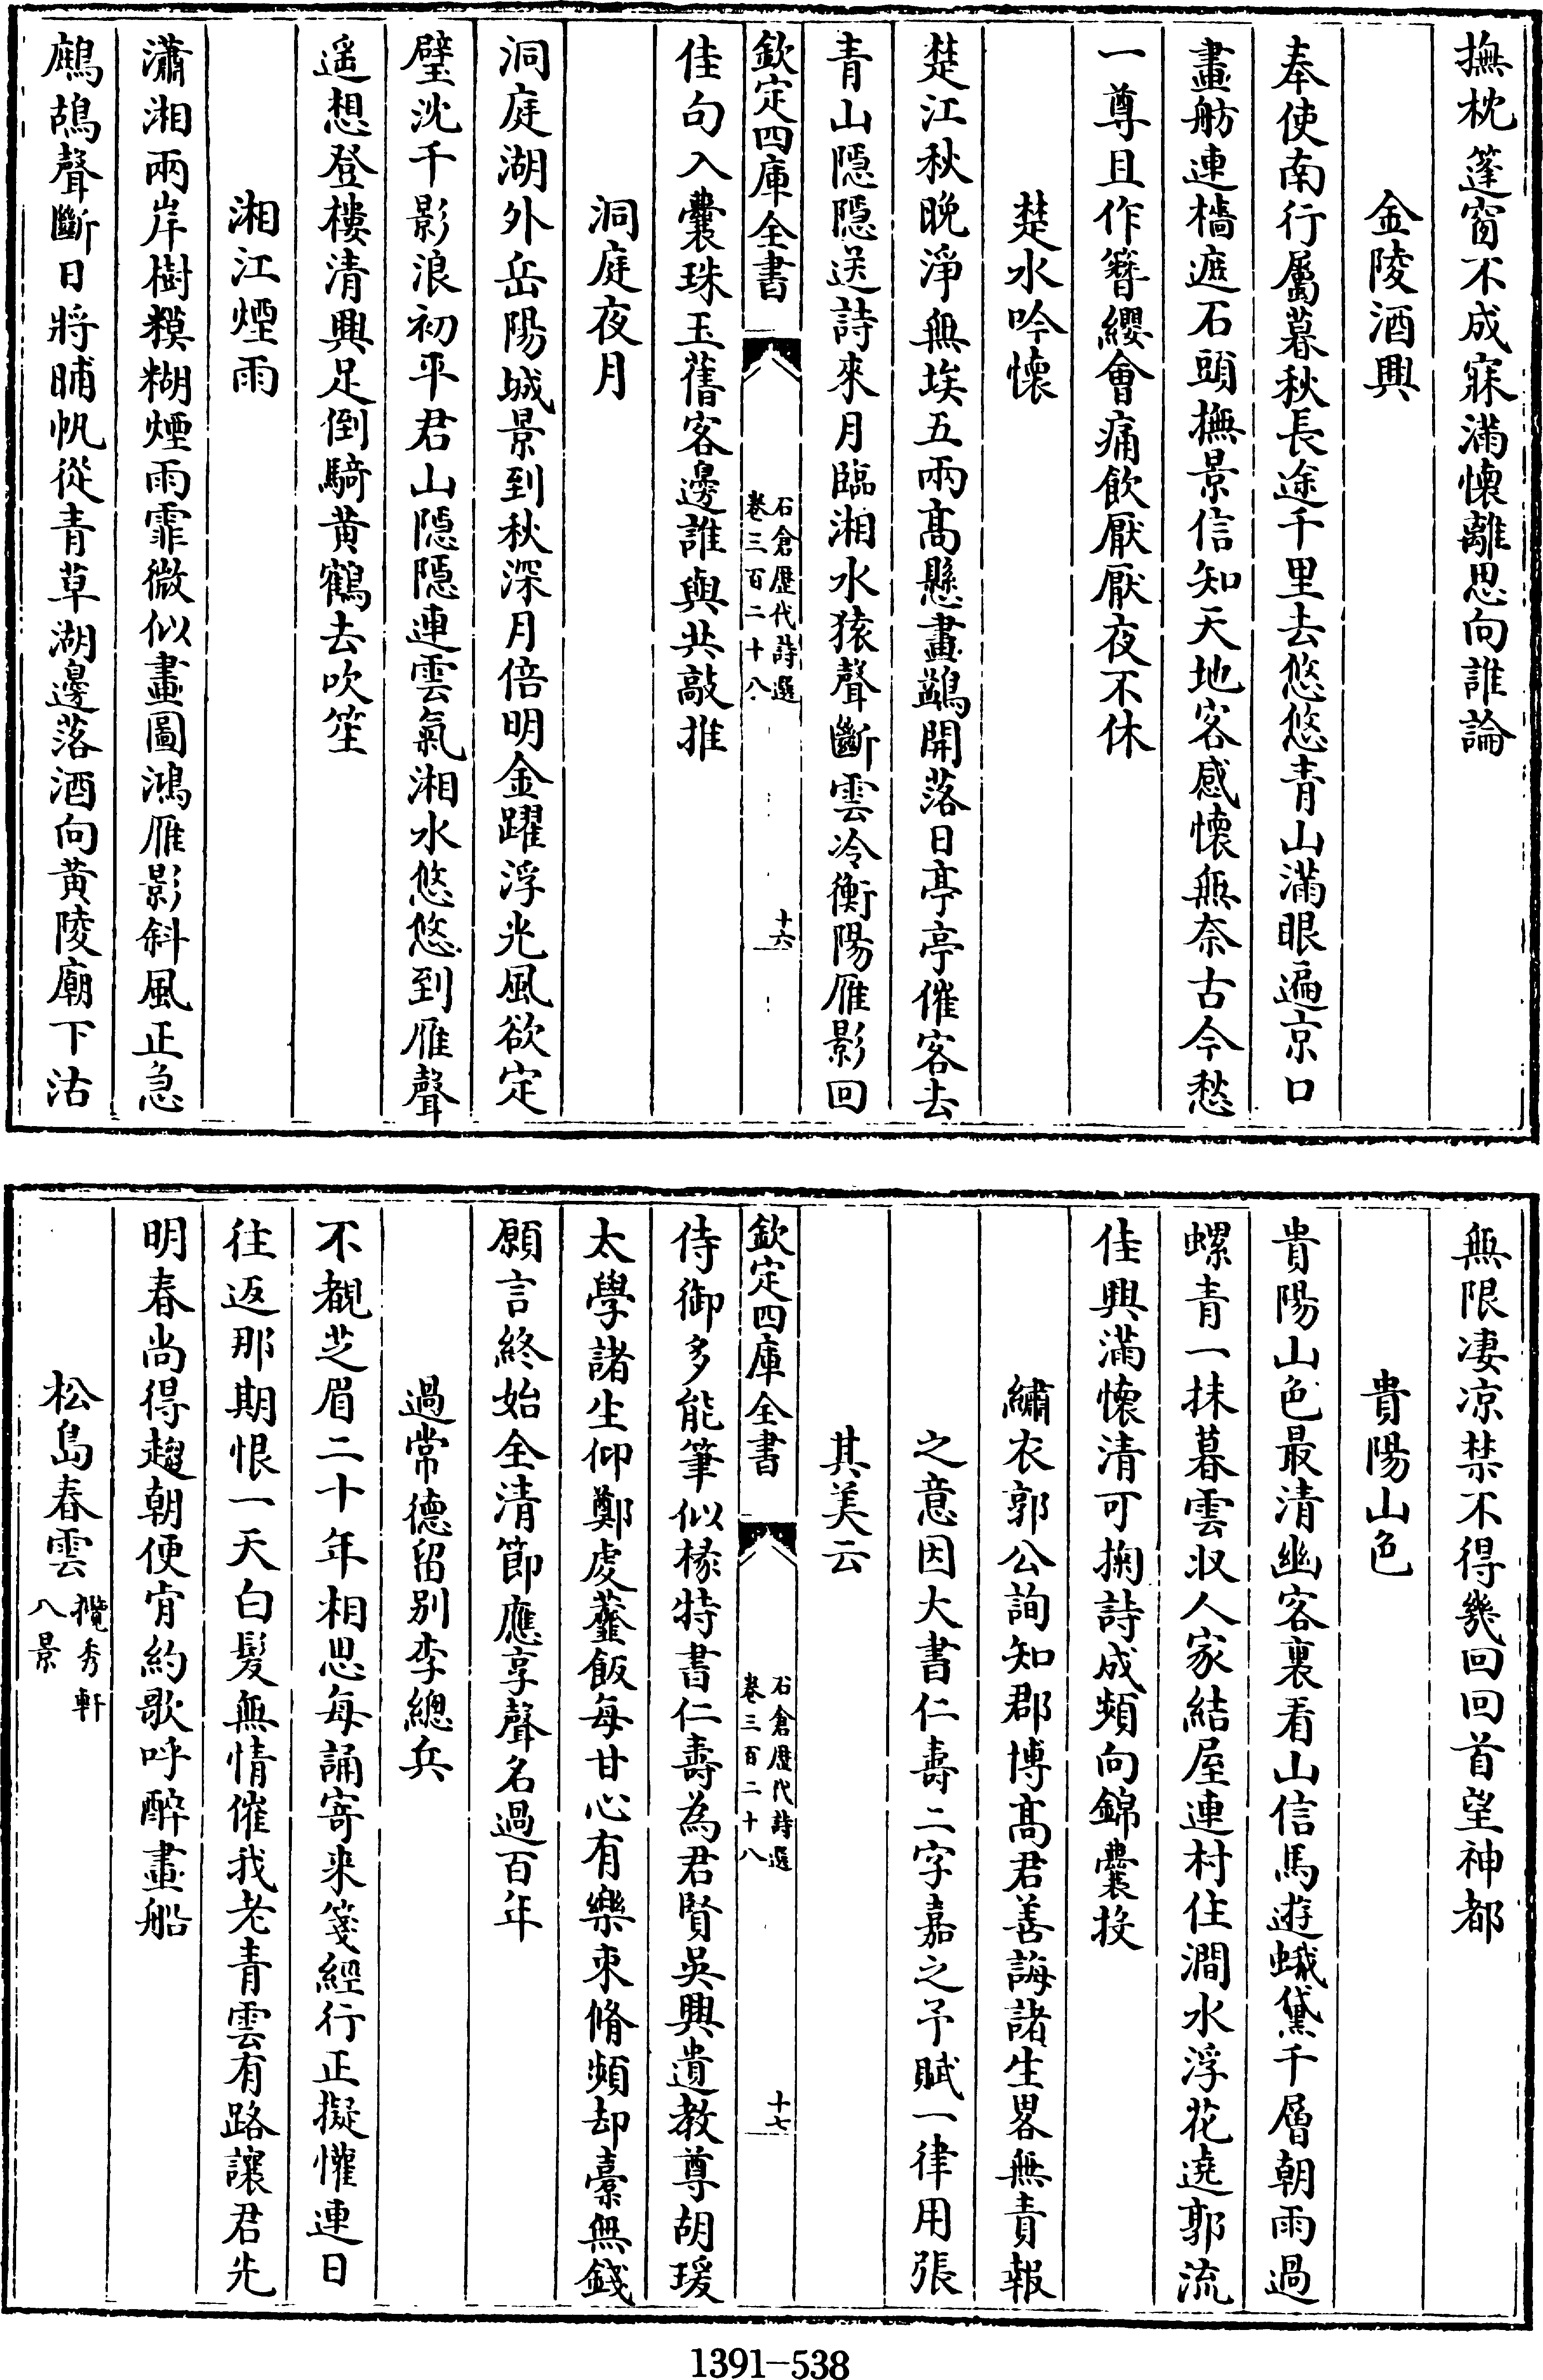 撫枕篷窗不成寐滿懷離思向誰論
金陵酒興
奉使南行屬暮秋長途千里去悠悠青山滿眼遍京口
畫舫連檣遮石頭撫景信知天地客感懷無奈古今愁
一尊且作簪纓會痛飲厭厭夜不休
楚水吟懷
楚江秋晚淨無埃五兩髙懸畫鷁開落日亭亭催客去
青山隠隠送詩來月臨湘水猿聲斷雲冷衡陽雁影回
欽定四庫全書
石倉歴代詩選
卷三百二十八
十六
佳句入囊珠玉舊客邊誰與共敲推
洞庭夜月
洞庭湖外岳陽城景到秋深月倍明金躍浮光風欲定
璧沈千影浪初平君山隠隠連雲氣湘水悠悠到雁聲
遥想登樓清興足倒騎黄鶴去吹笙
湘江煙雨
瀟湘兩岸樹糢糊煙雨霏微似畫圖鴻雁影斜風正急
鷓鴣聲斷日將晡帆從青草湖邊落酒向黄陵廟下沽
無限凄凉禁不得幾回回首望神都
貴陽山色
貴陽山色最清幽客裏看山信馬遊蛾黛千層朝雨過
螺青一抹暮雲収人家結屋連村住澗水浮花遶郭流
佳興滿懷清可掬詩成頻向錦囊投
繡衣郭公詢知郡博髙君善誨諸生畧無責報
之意因大書仁壽二字嘉之予賦一律用張
其美云
欽定四庫全書
石倉歴代詩選
卷三百二十八
十七
侍御多能筆似椽特書仁壽為君賢吳興遺教尊胡瑗
太學諸生仰鄭虔虀飯每甘心有樂束脩頻却槖無錢
願言終始全清節應享聲名過百年
過常德留别李總兵
不覩芝眉二十年相思每誦寄來箋經行正擬懽連日
往返那期恨一天白髮無情催我老青雲有路讓君先
明春尚得趨朝便肯約歌呼醉畫船
松島春雲
攬秀軒
八景
1391-538